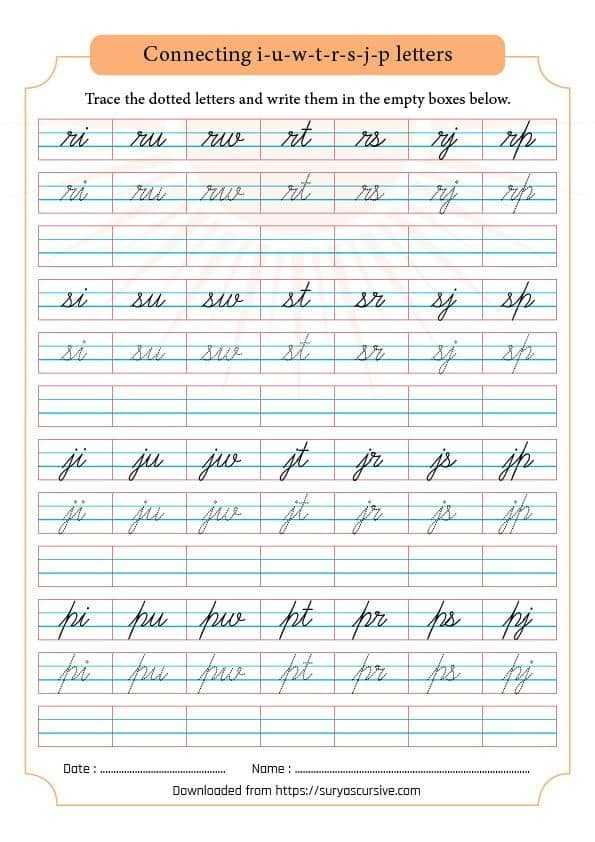 Connecting i-u-w-t-r-s-j-p letters
Trace the dotted letters and write them in the empty boxes below.
ri ru rw rt rs rj rp
ri ru rw rt rs rj rp
si su sw st sr sj sp
si su sw st sr sj sp
ji ju jw jt jr js jp
ji ju jw jt jr js jp
pi pu pw pt pr ps pj
pi pu pw pt pr ps pj
Date : ................................................ Name : ..........................................................................................
Downloaded from https://suryascursive.com